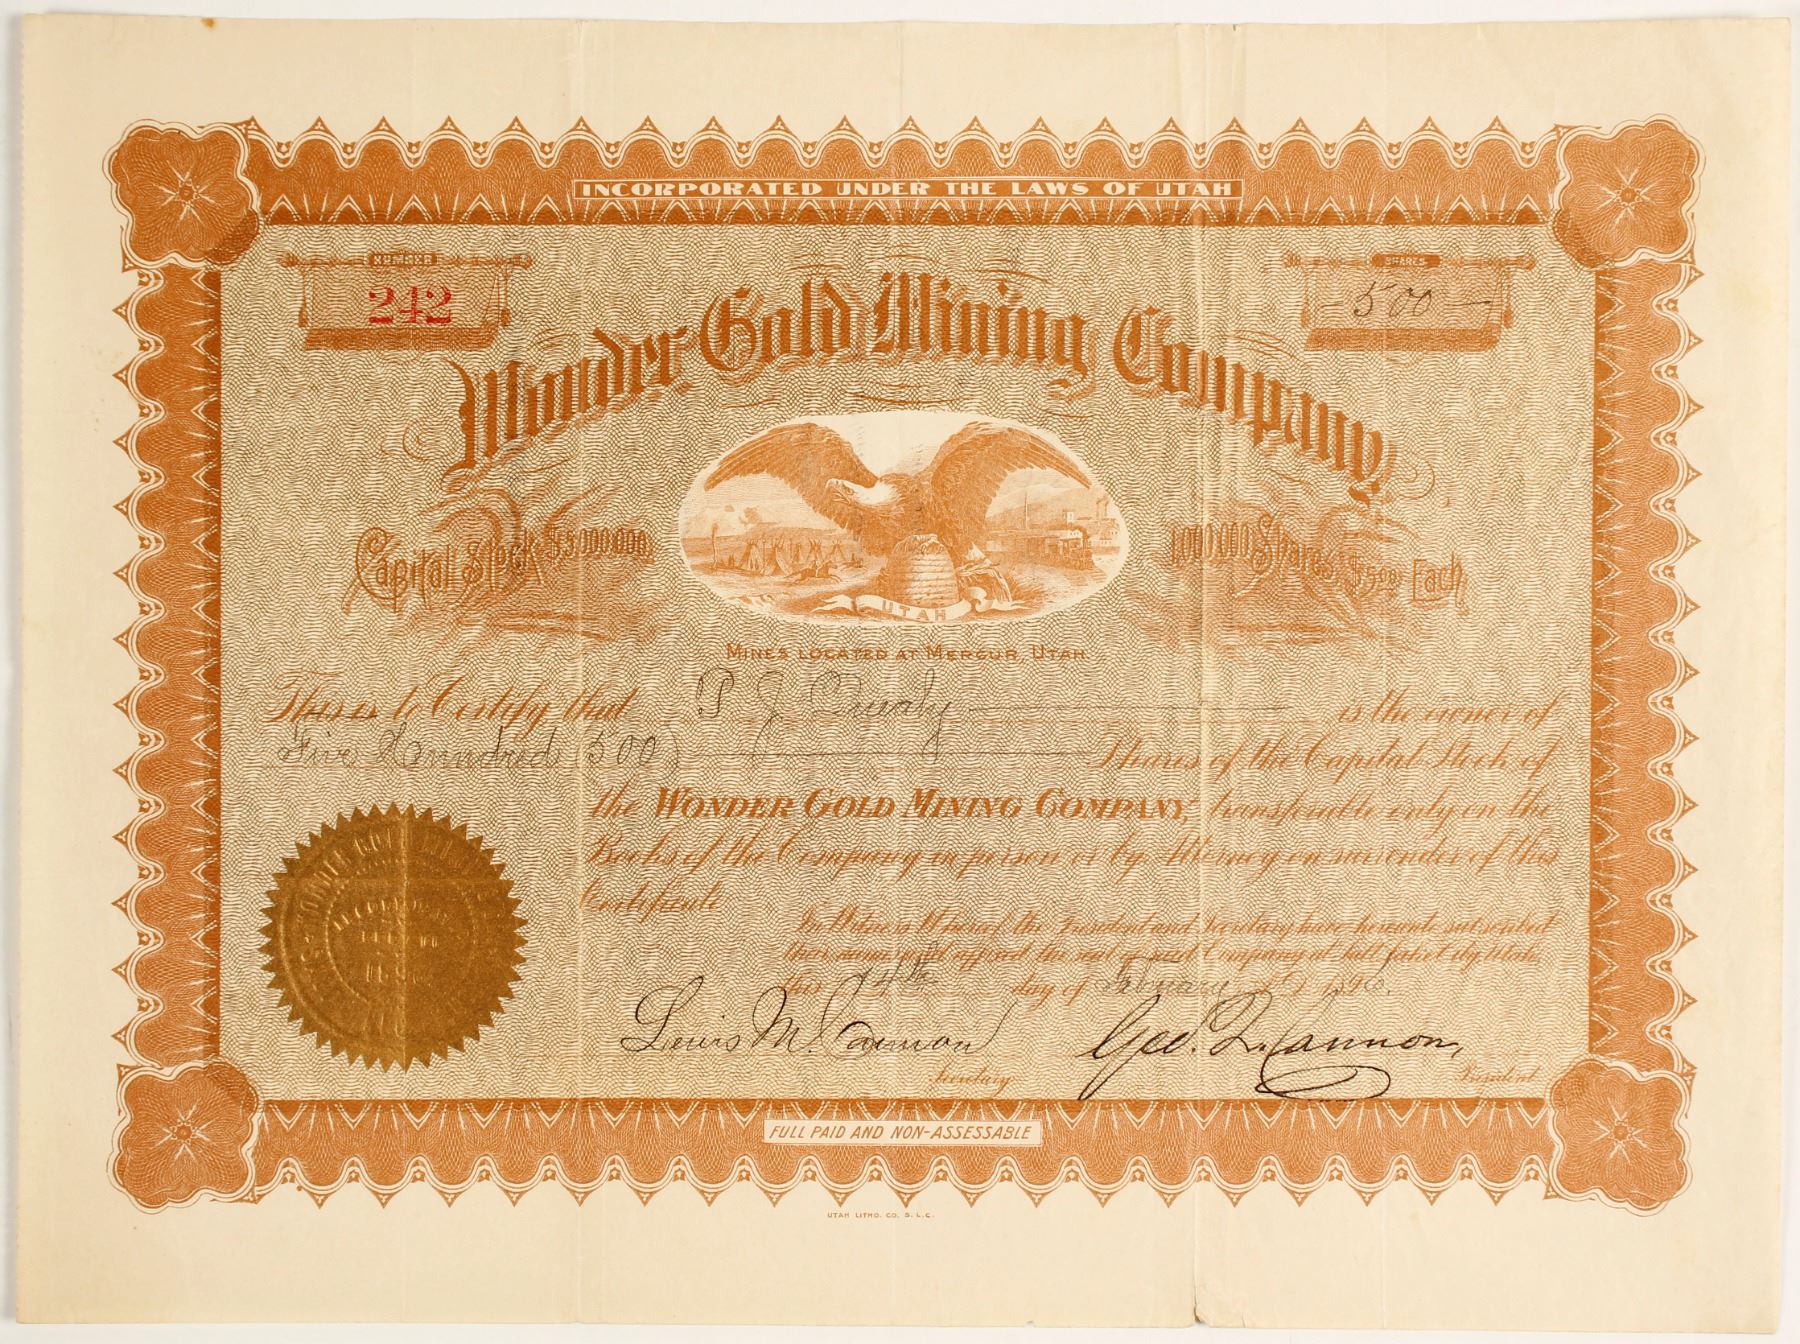 INCORPORATED UNDER THE LAWS OF UTAH
NUMBER
242
SHARES
- 500 -
Wonder Gold Mining Company
Capital Stock $5,000,000.
1,000,000 Shares, $5.00 Each.
UTAH
MINES LOCATED AT MERCUR, UTAH
This is to Certify that P J is the owner of
Five Hundred (500) Shares of the Capital Stock of
the WONDER GOLD MINING COMPANY, transferable only on the
Books of the Company in person or by Attorney on surrender of this
Certificate
In Witness Whereof the President and Secretary have hereunto subscribed
their names and affixed the seal of said Company at Salt Lake City Utah,
this 4th day of February A.D. 1896.
Lewis M. Cannon
Geo. Q. Cannon,
Secretary
President
FULL PAID AND NON-ASSESSABLE
UTAH LITHO. CO. S.L.C.